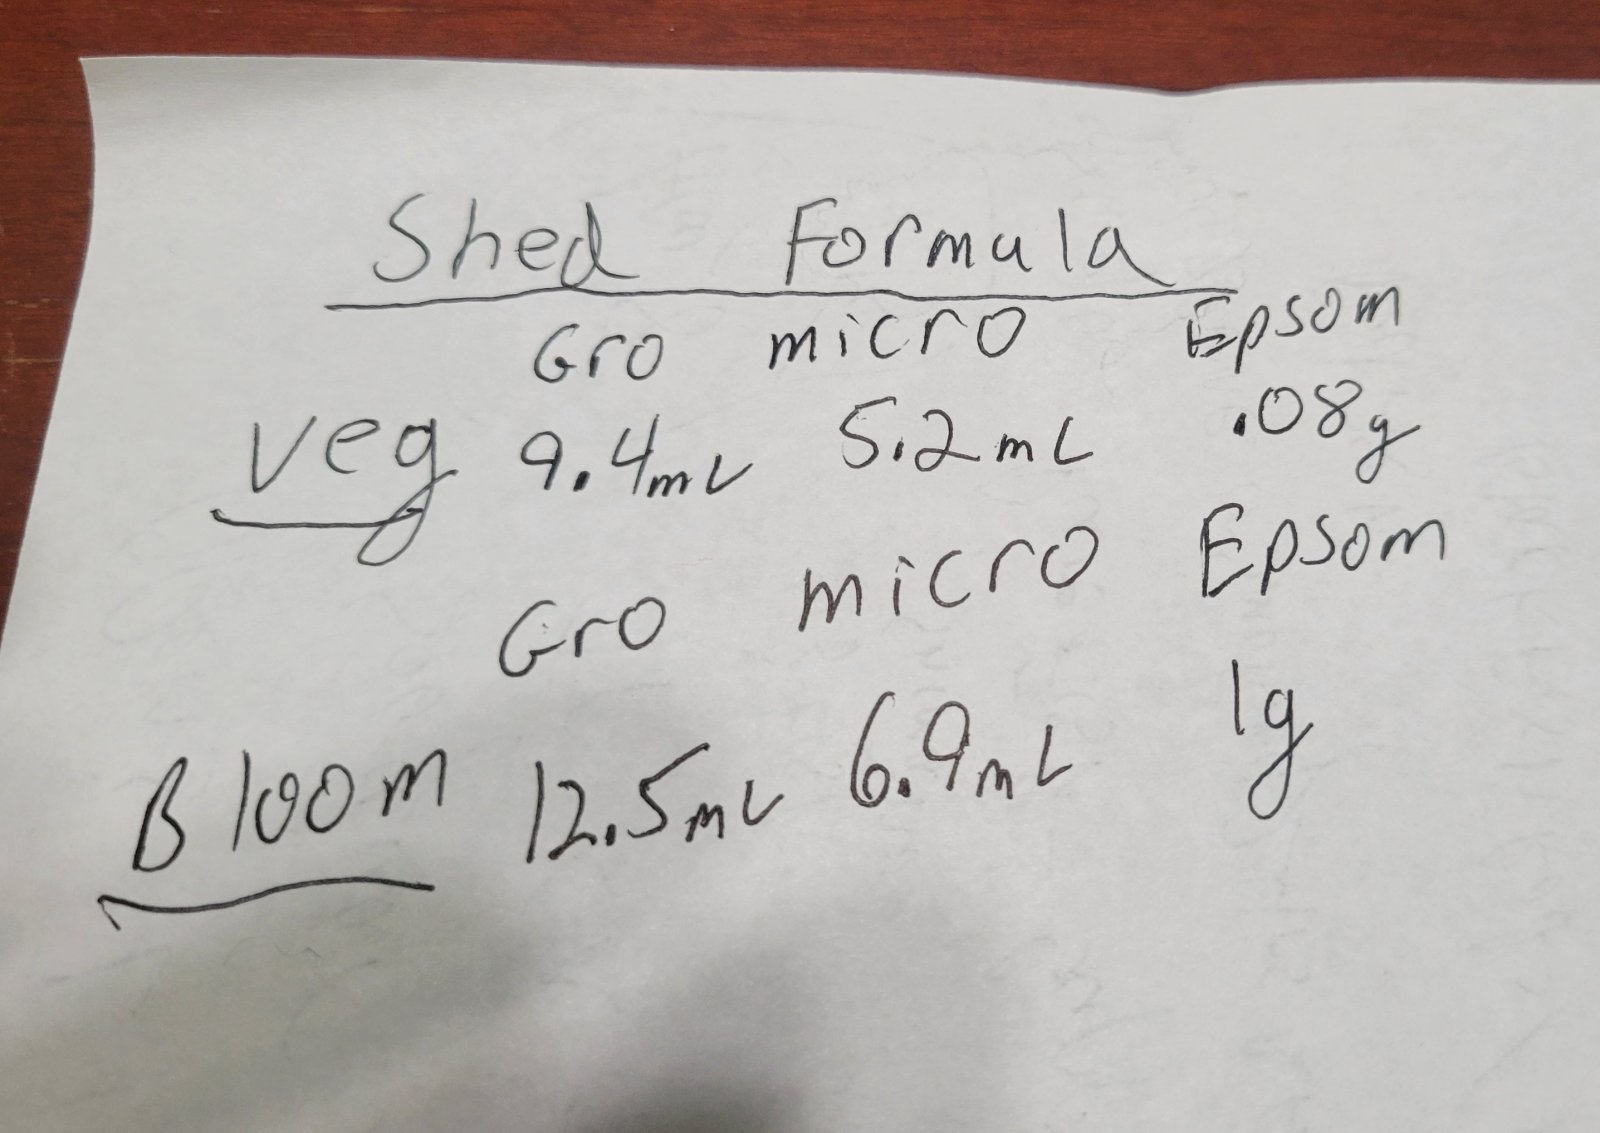 Shed Formula
Gro micro Epsom
Veg 9.4mL 5.2mL .08g
Gro micro Epsom
Bloom 12.5mL 6.9mL 1g